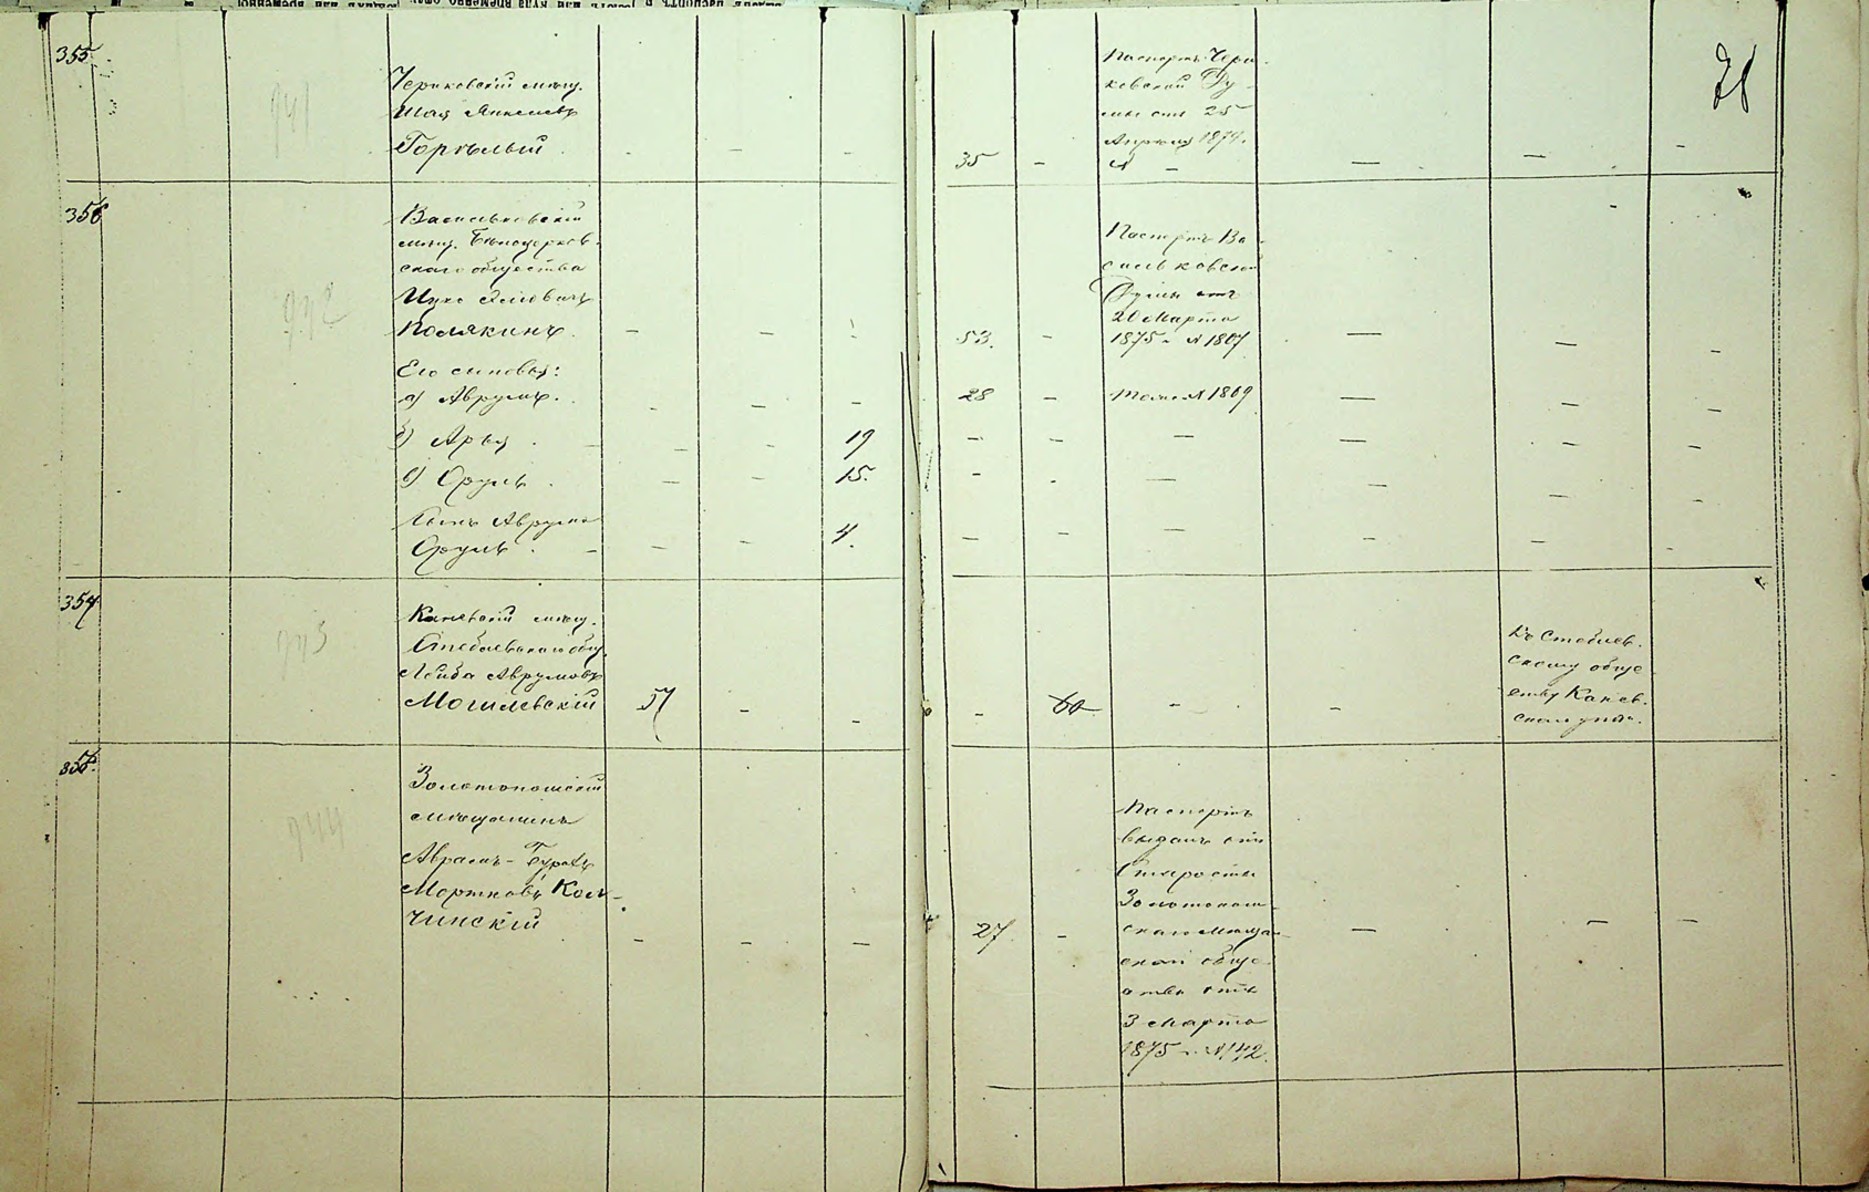 355
941
Чериковскій мѣщ.
Шая Янкелевъ
Горѣлый
35
Паспортъ Чери
ковской Ду
мы отъ 25
Апрѣля 1874.
N
28
356
942
Васильковскій
мѣщ. Бѣлоцерков-
скаго общества
Полякинъ
53.
Паспортъ Ва
сильковской
Думы отъ
20 Марта
1875 г. N 1807
Его сыновья:
а) Аврумъ.
28
тоже N 1809
б) Арья
19
в) Сруль
15.
Сынъ Аврума
Сруль
4.
357
943
Каневскій мѣщ.
Стеблевскаго общ.
Лейба Аврумовъ
Могилевскій
57
60
Къ Стеблев.
скому обще
ству Канев.
скаго уѣзд.
358.
944
Золотоношскій
мѣщанинъ
Аврамъ-
Мортковъ Коль-
чинскій
27
Паспортъ
выданъ отъ
Старосты
Золотонош-
скаго Мѣща-
скаго обще
ства отъ
3 Марта
1875 г. N 142.